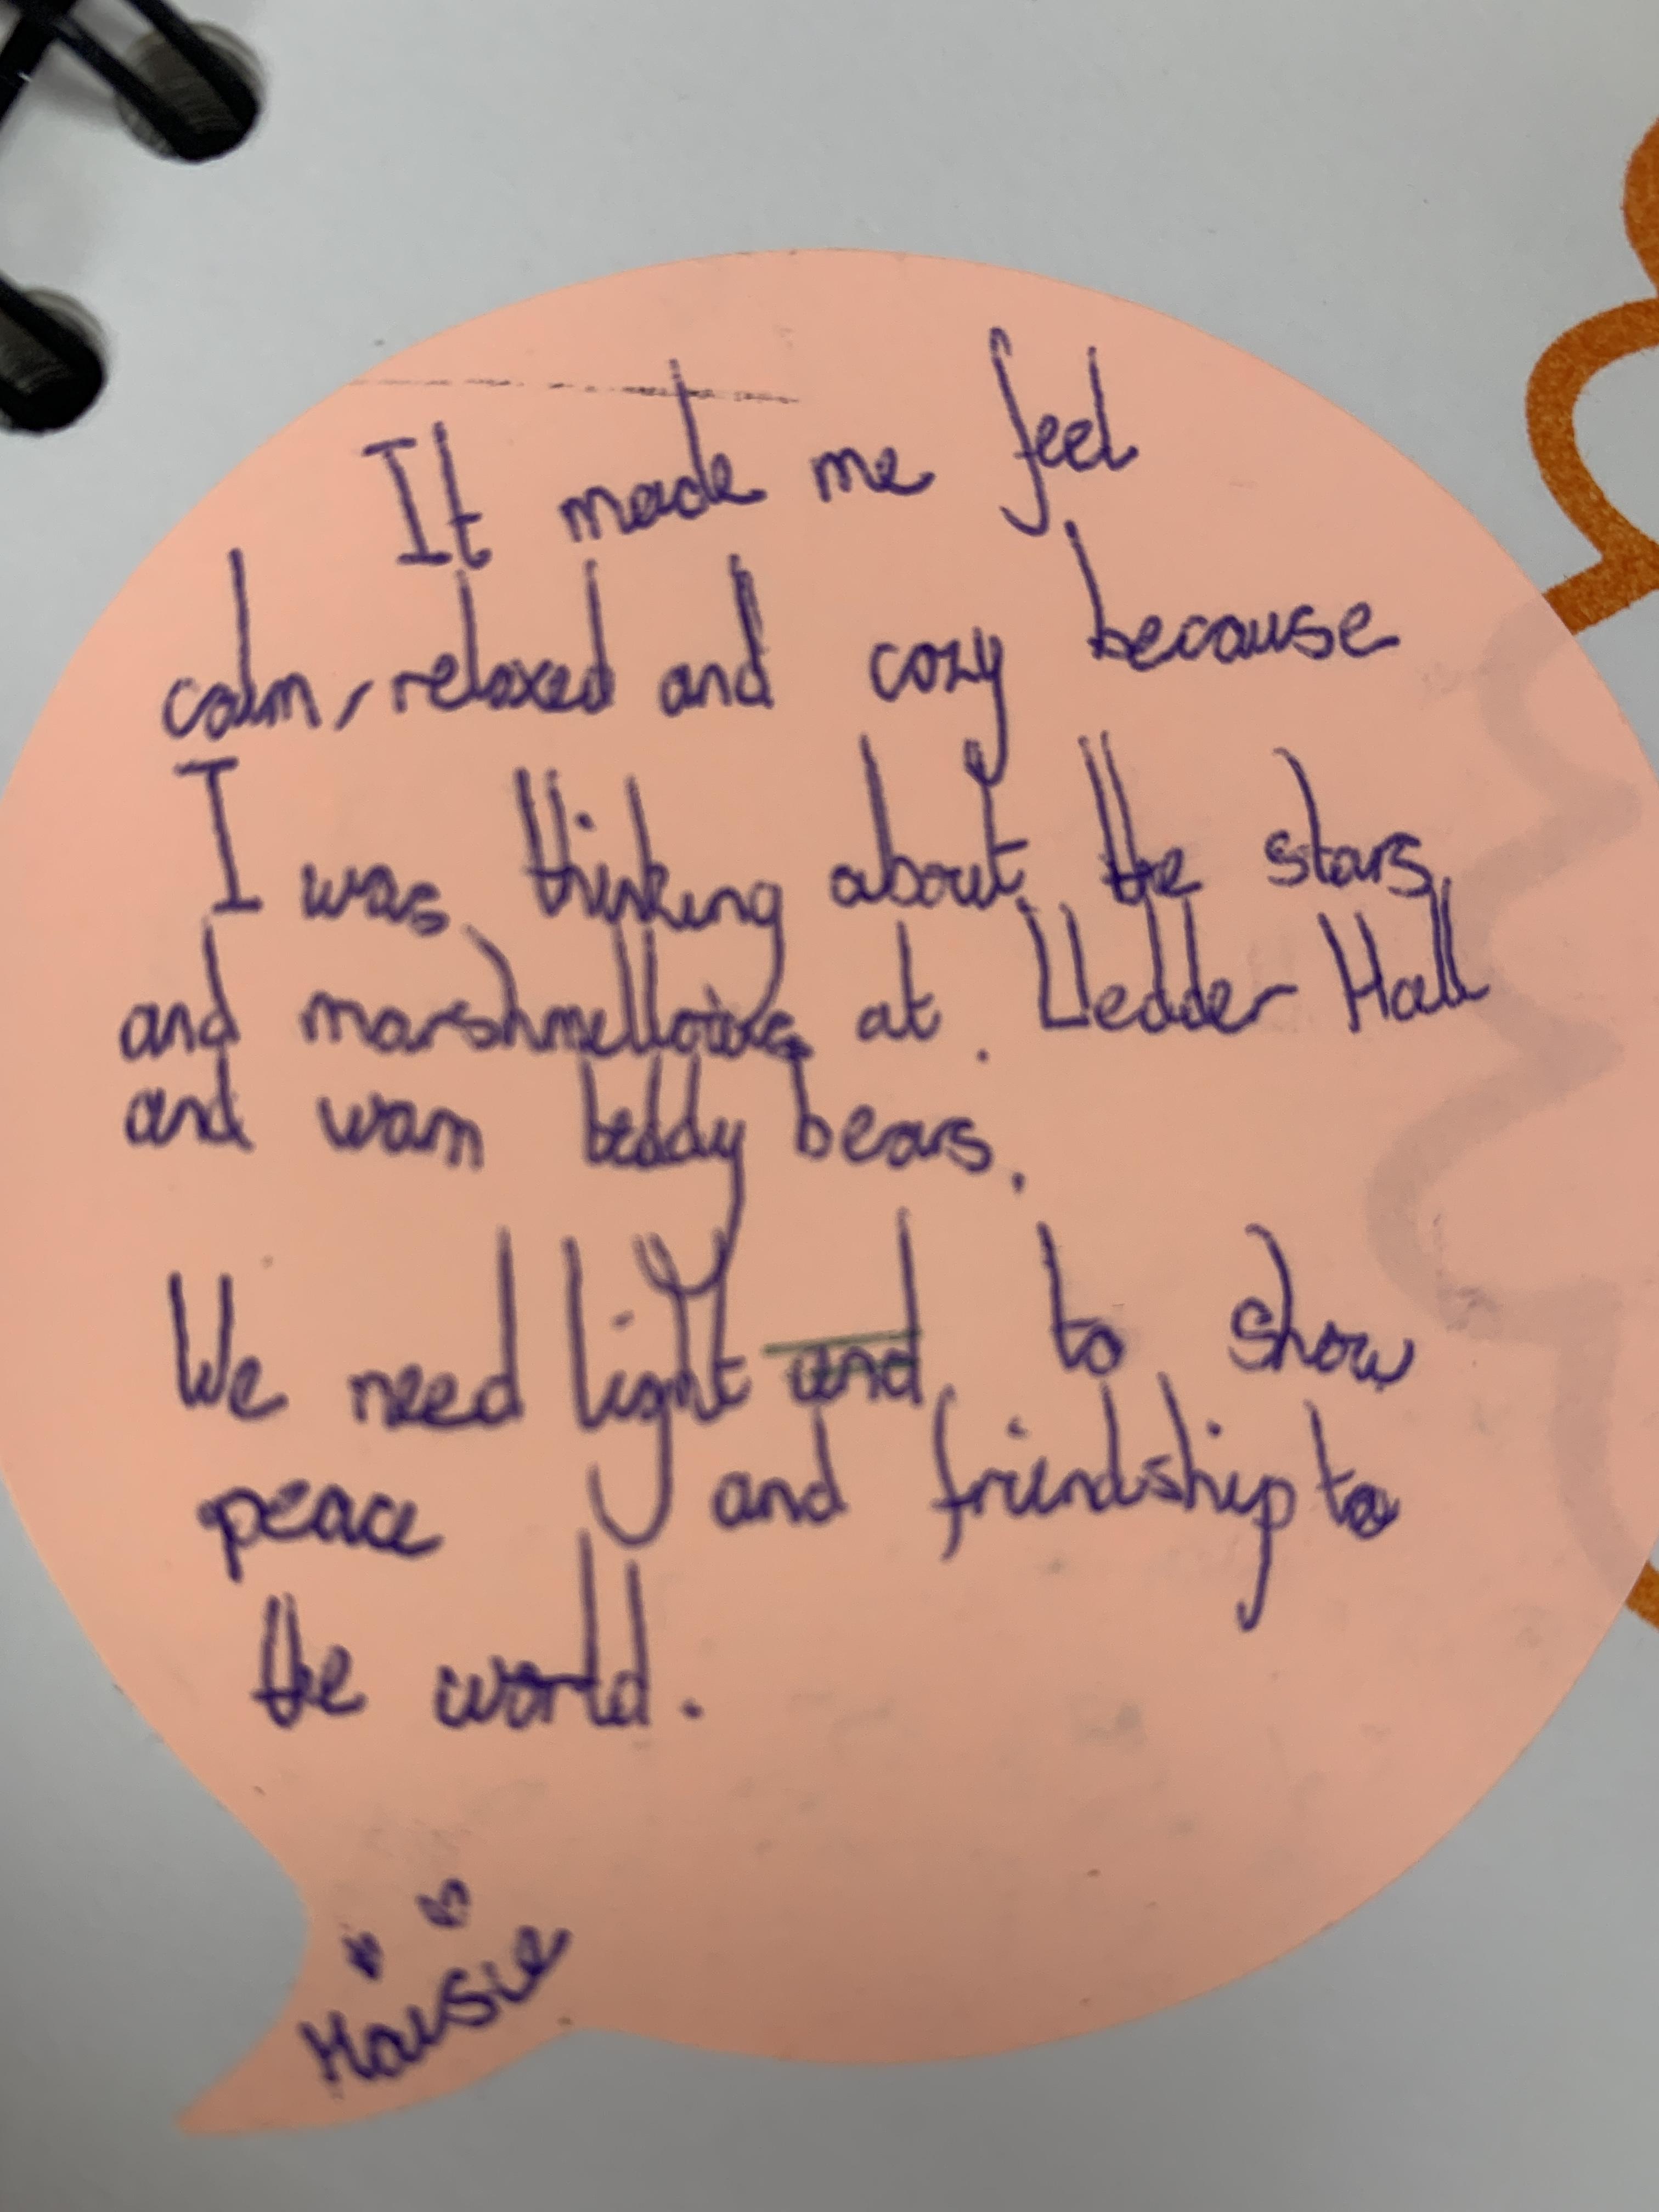 It made me feel
calm, relaxed and cozy because
I was thinking about the stars
and marshmellows at Lledder Hall
and warm teddy bears.
We need light and to show
peace and friendship to
the world.
Maisie